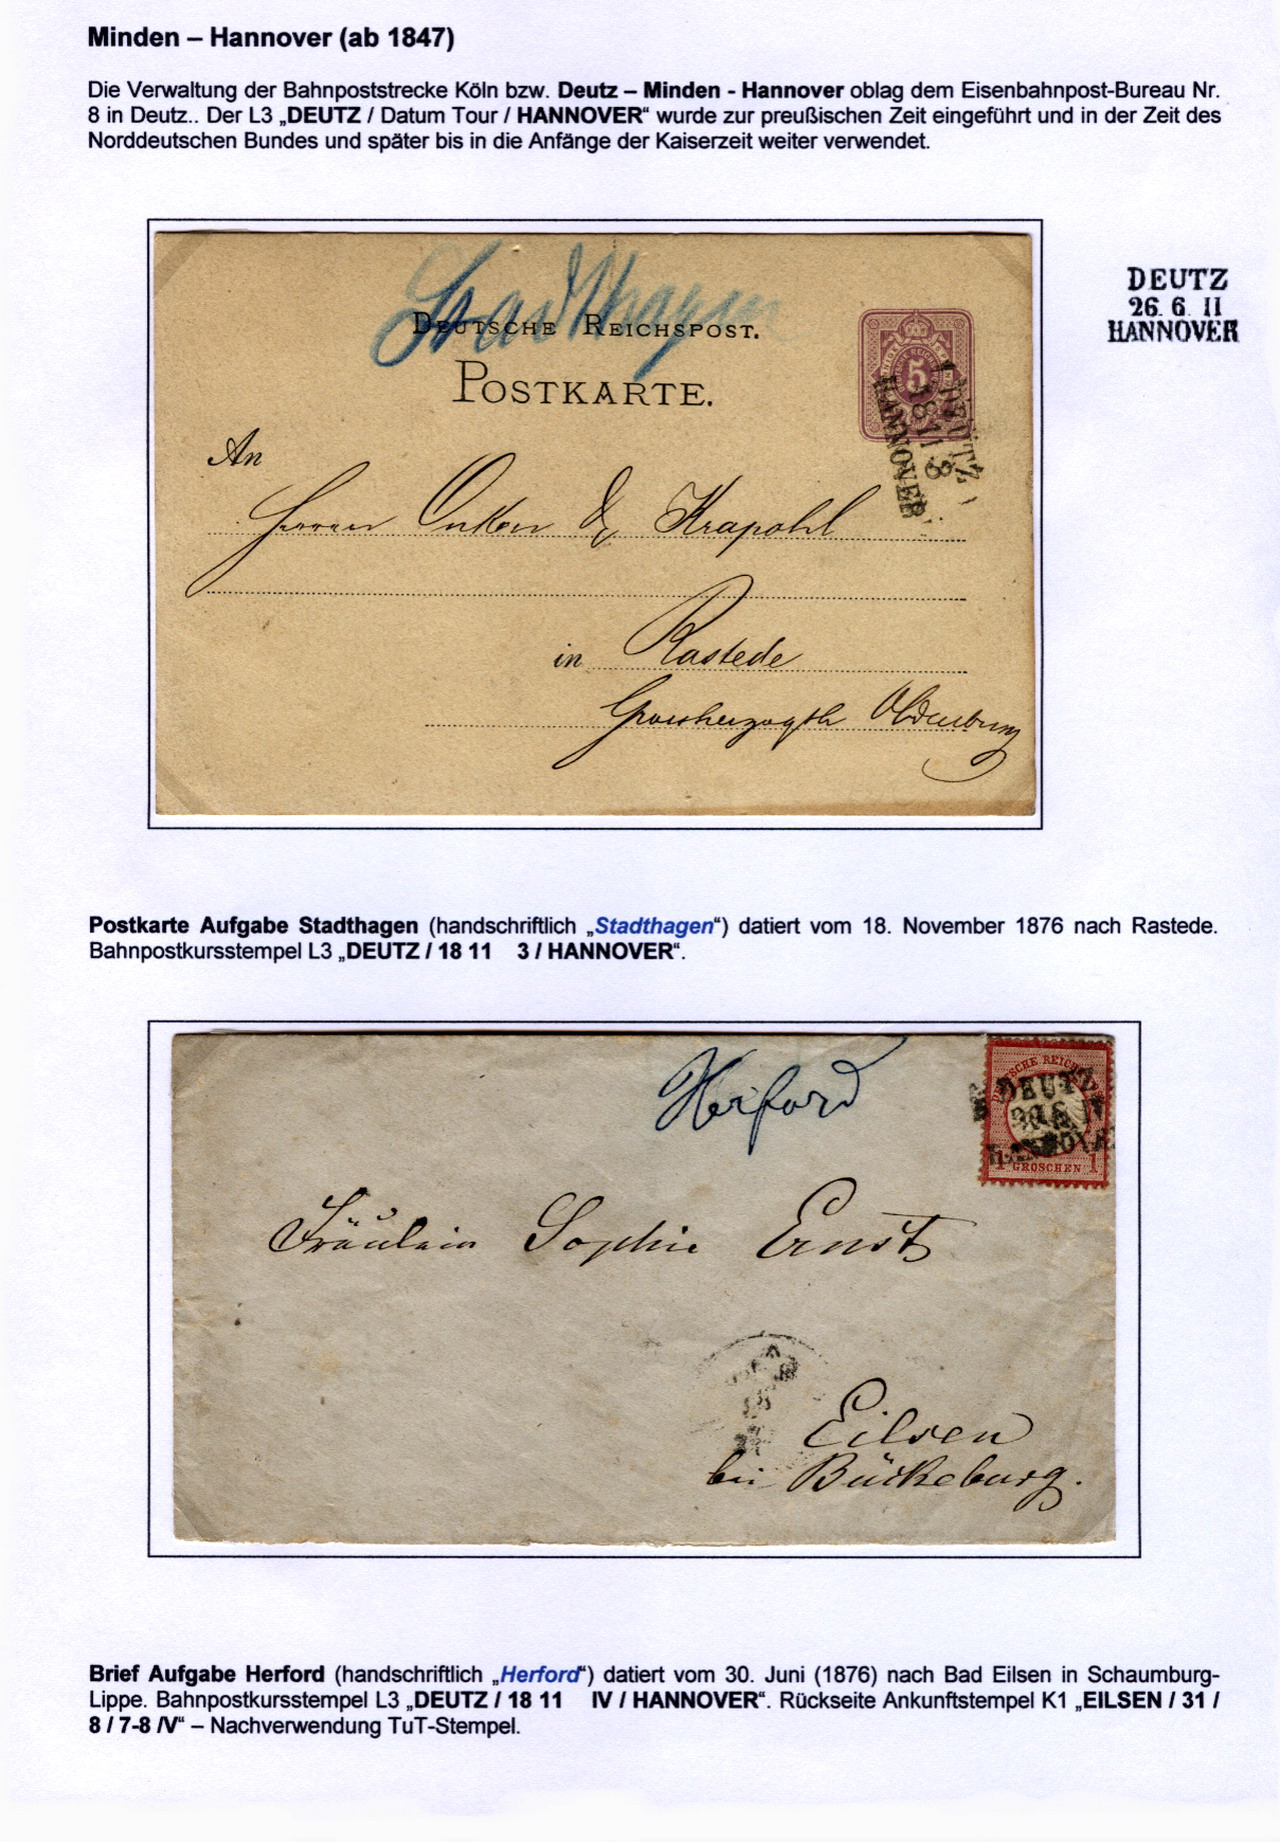 Minden – Hannover (ab 1847)
Die Verwaltung der Bahnpoststrecke Köln bzw. Deutz – Minden - Hannover oblag dem Eisenbahnpost-Bureau Nr.
8 in Deutz.. Der L3 „DEUTZ / Datum Tour / HANNOVER“ wurde zur preußischen Zeit eingeführt und in der Zeit des
Norddeutschen Bundes und später bis in die Anfänge der Kaiserzeit weiter verwendet.
DEUTZ
26. 6 II
HANNOVER
Stadthagen
DEUTSCHE REICHSPOST.
POSTKARTE.
5
DEUTZ
18 11 3
HANNOVER
An
Herren Onken & Krapohl
in Rastede
Grossherzogth Oldenburg
Postkarte Aufgabe Stadthagen (handschriftlich „Stadthagen“) datiert vom 18. November 1876 nach Rastede.
Bahnpostkursstempel L3 „DEUTZ / 18 11 3 / HANNOVER“.
Herford
DEUTSCHE REICHS
DEUTZ
HANNOVE
1 GROSCHEN 1
Fräulein Sophie Ernst
Eilsen
bei Bückeburg.
Brief Aufgabe Herford (handschriftlich „Herford“) datiert vom 30. Juni (1876) nach Bad Eilsen in Schaumburg-
Lippe. Bahnpostkursstempel L3 „DEUTZ / 18 11 IV / HANNOVER“. Rückseite Ankunftstempel K1 „EILSEN / 31 /
8 / 7-8 /V“ – Nachverwendung TuT-Stempel.